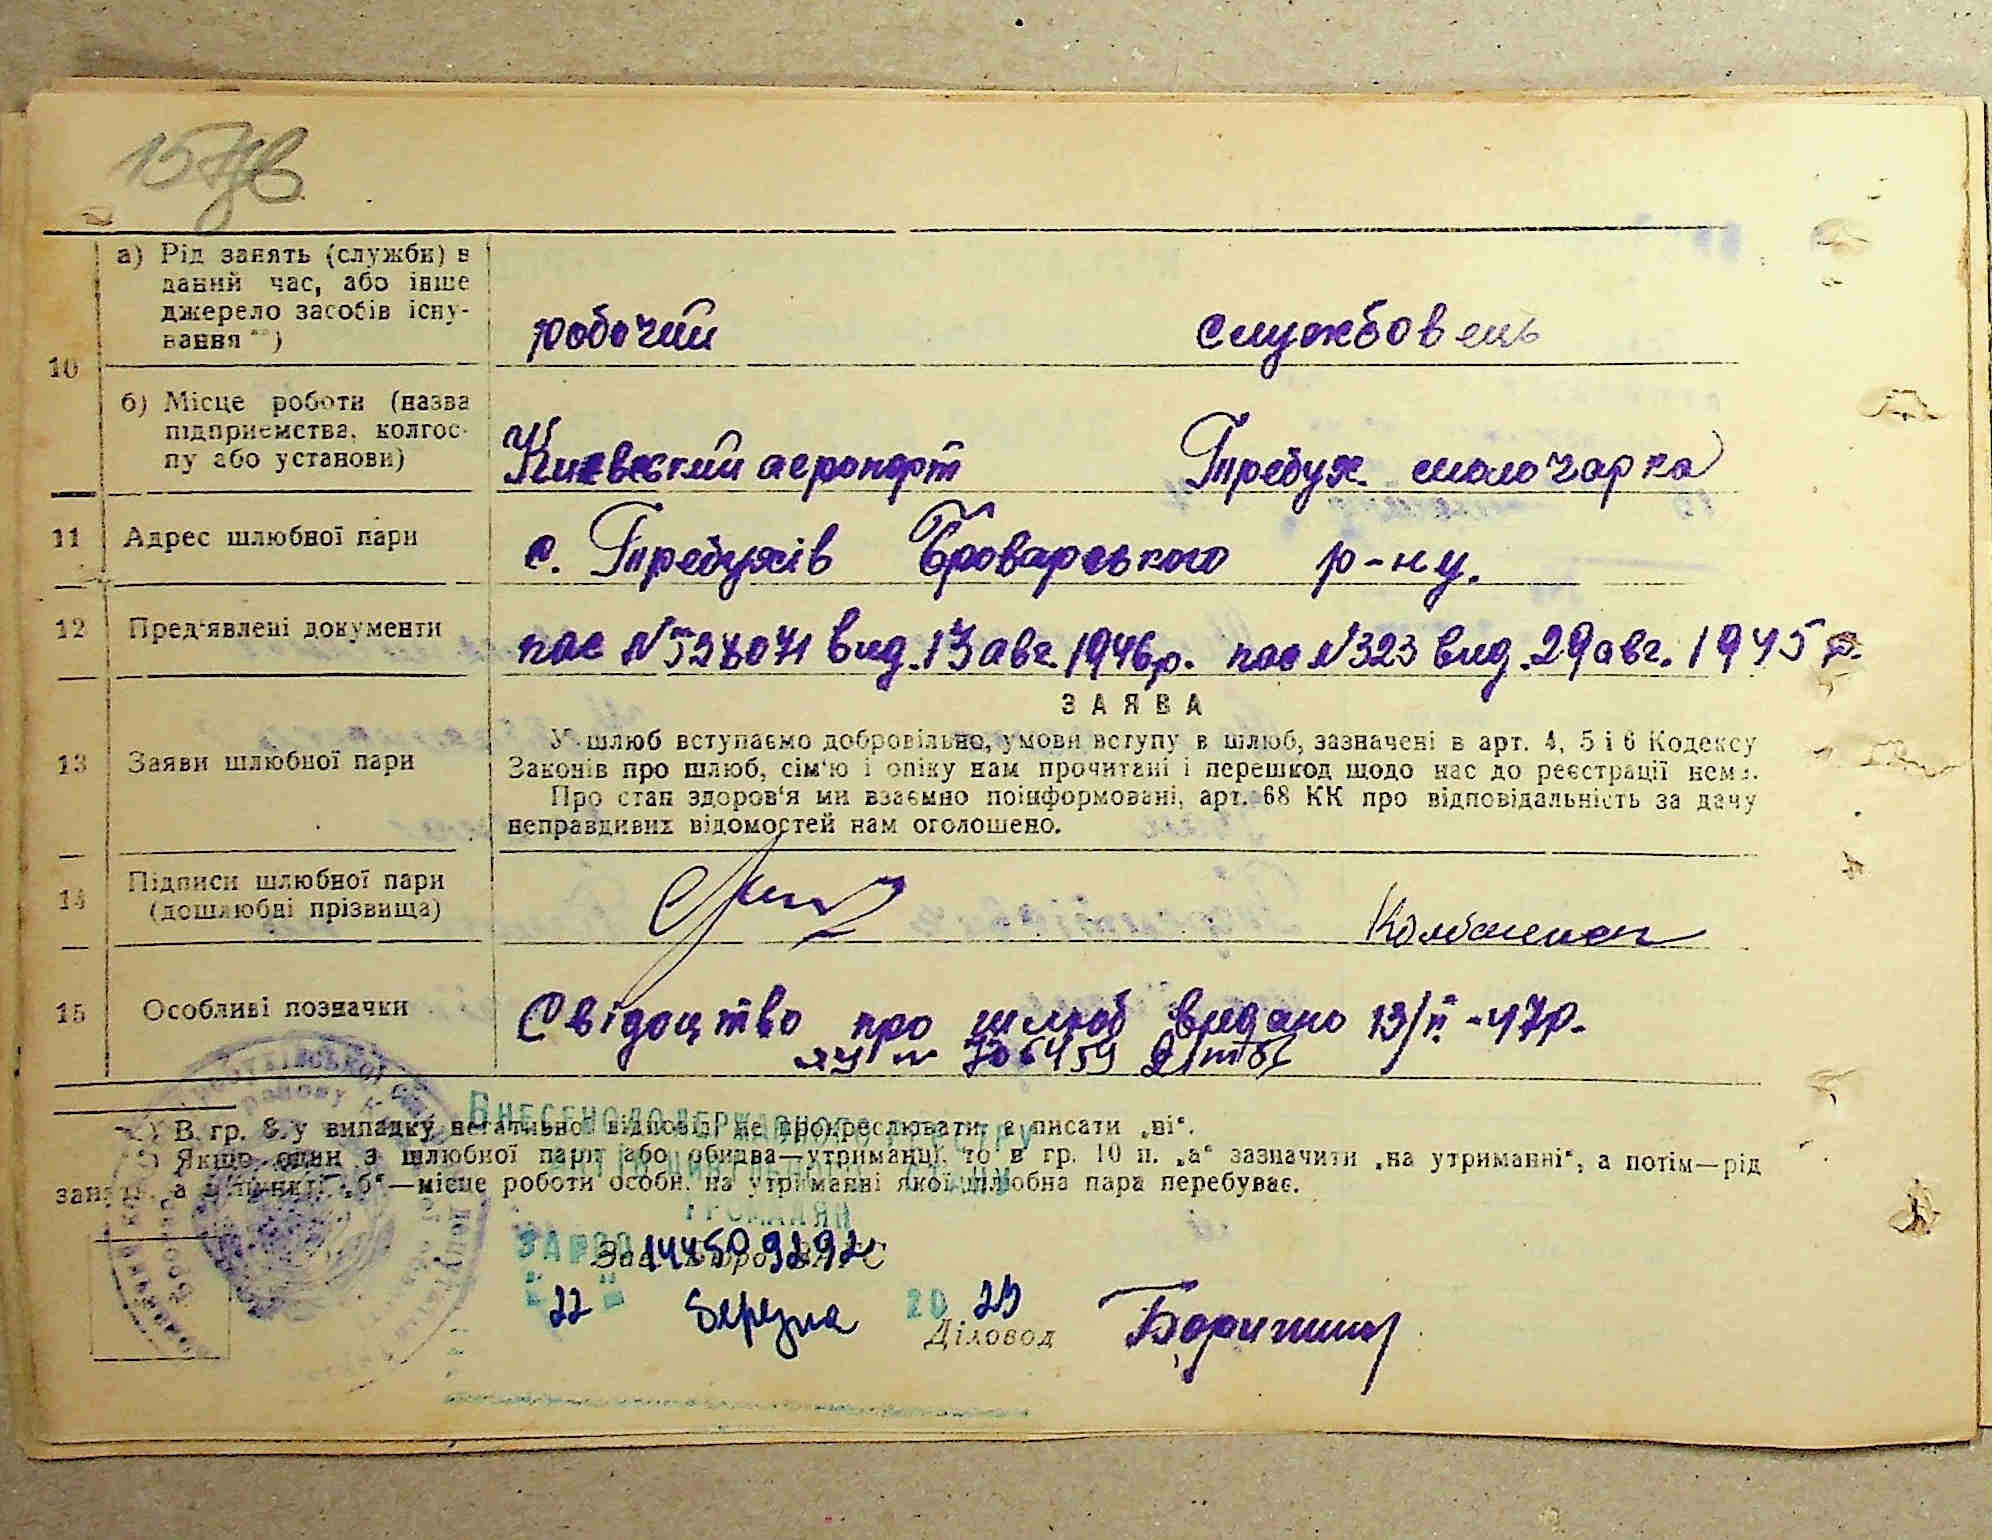 157зв
а) Рід занять (служби) в
даний час, або інше
джерело засобів існу-
вання **)
робочий службовець
10
б) Місце роботи (назва
підприємства, колгос-
пу або установи)
Киевский аеропорт Требух. молочарка
11 Адрес шлюбної пари с. Требухів Броварського р-ну.
12 Пред'явлені документи пас № 528071 вид. 13 авг. 1946р. пас № 323 вид. 29 авг. 1945 р.
ЗАЯВА
13 Заяви шлюбної пари
У шлюб вступаємо добровільно, умови вступу в шлюб, зазначені в арт. 4, 5 і 6 Кодексу
Законів про шлюб, сім'ю і опіку нам прочитані і перешкод щодо нас до реєстрації нема.
Про стан здоров'я ми взаємно поінформовані, арт. 68 КК про відповідальність за дачу
неправдивих відомостей нам оголошено.
14 Підписи шлюбної пари
(дошлюбні прізвища)
15 Особливі позначки Свідоцтво про шлюб видано 13/II-47р.
№ 706459
ВНЕСЕНО ДО ДЕРЖАВНОГО РЕЄСТРУ
*) В гр. 8 у випадку негативної відповіді не прокреслювати, а писати „ні“.
**) Якщо один з шлюбної пари або обидва—утриманці, то в гр. 10 п. „а“ зазначити „на утриманні“, а потім—рід
занять, а в пункті „б“—місце роботи особи, на утриманні якої шлюбна пара перебуває.
ГРОМАДЯН
ЗА №
" 22 " березня 20 23
Діловод